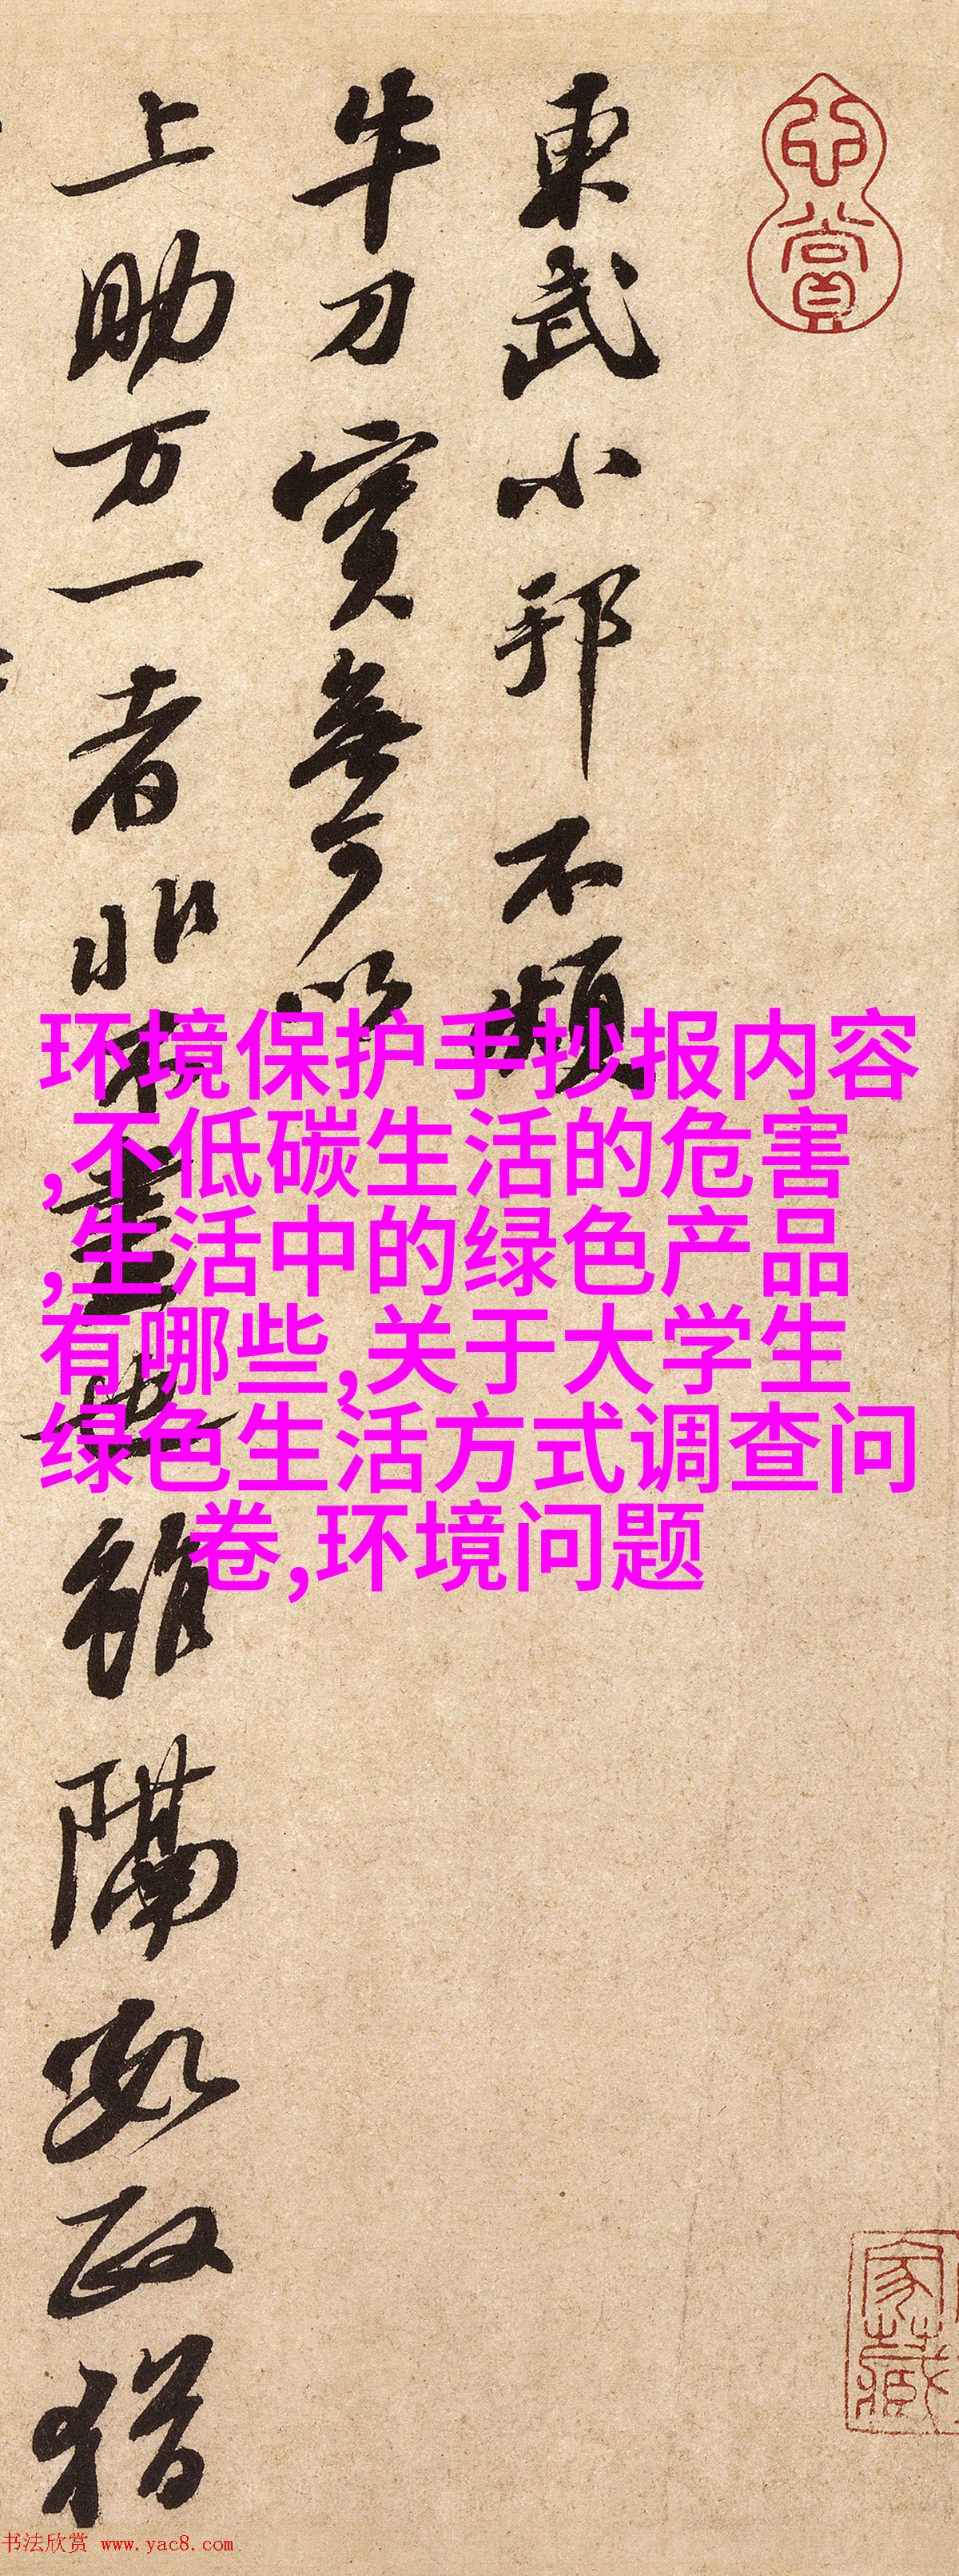 東武小邦不煩
牛刀實無可以
上助万一者非
書也雖隔數政猶
心賞
家藏
环境保护手抄报内容
,不低碳生活的危害
,生活中的绿色产品
有哪些,关于大学生
绿色生活方式调查问
卷,环境问题
书法欣赏 www.yac8.com